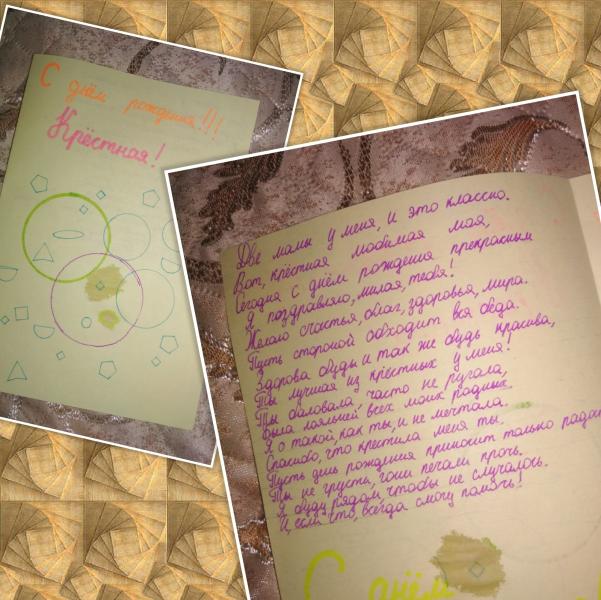 С днём рождения!!!
Крёстная!
Две мамы у меня, и это классно.
Вот, крёстная любимая моя,
Сегодня с днём рождения прекрасным
Я поздравляю, милая, тебя!
Желаю счастья, благ, здоровья, мира.
Пусть стороной обходит вся беда.
Здорова будь и так же будь красива,
Ты лучшая из крёстных у меня!
Ты баловала, часто не ругала,
Была лояльней всех моих родных.
Я о такой, как ты, и не мечтала.
Спасибо, что крестила меня ты.
Пусть день рождения приносит только радость
Ты не грусти, гони печали прочь.
Я буду рядом, чтобы не случалось.
И, если что, всегда смогу помочь!
С днём